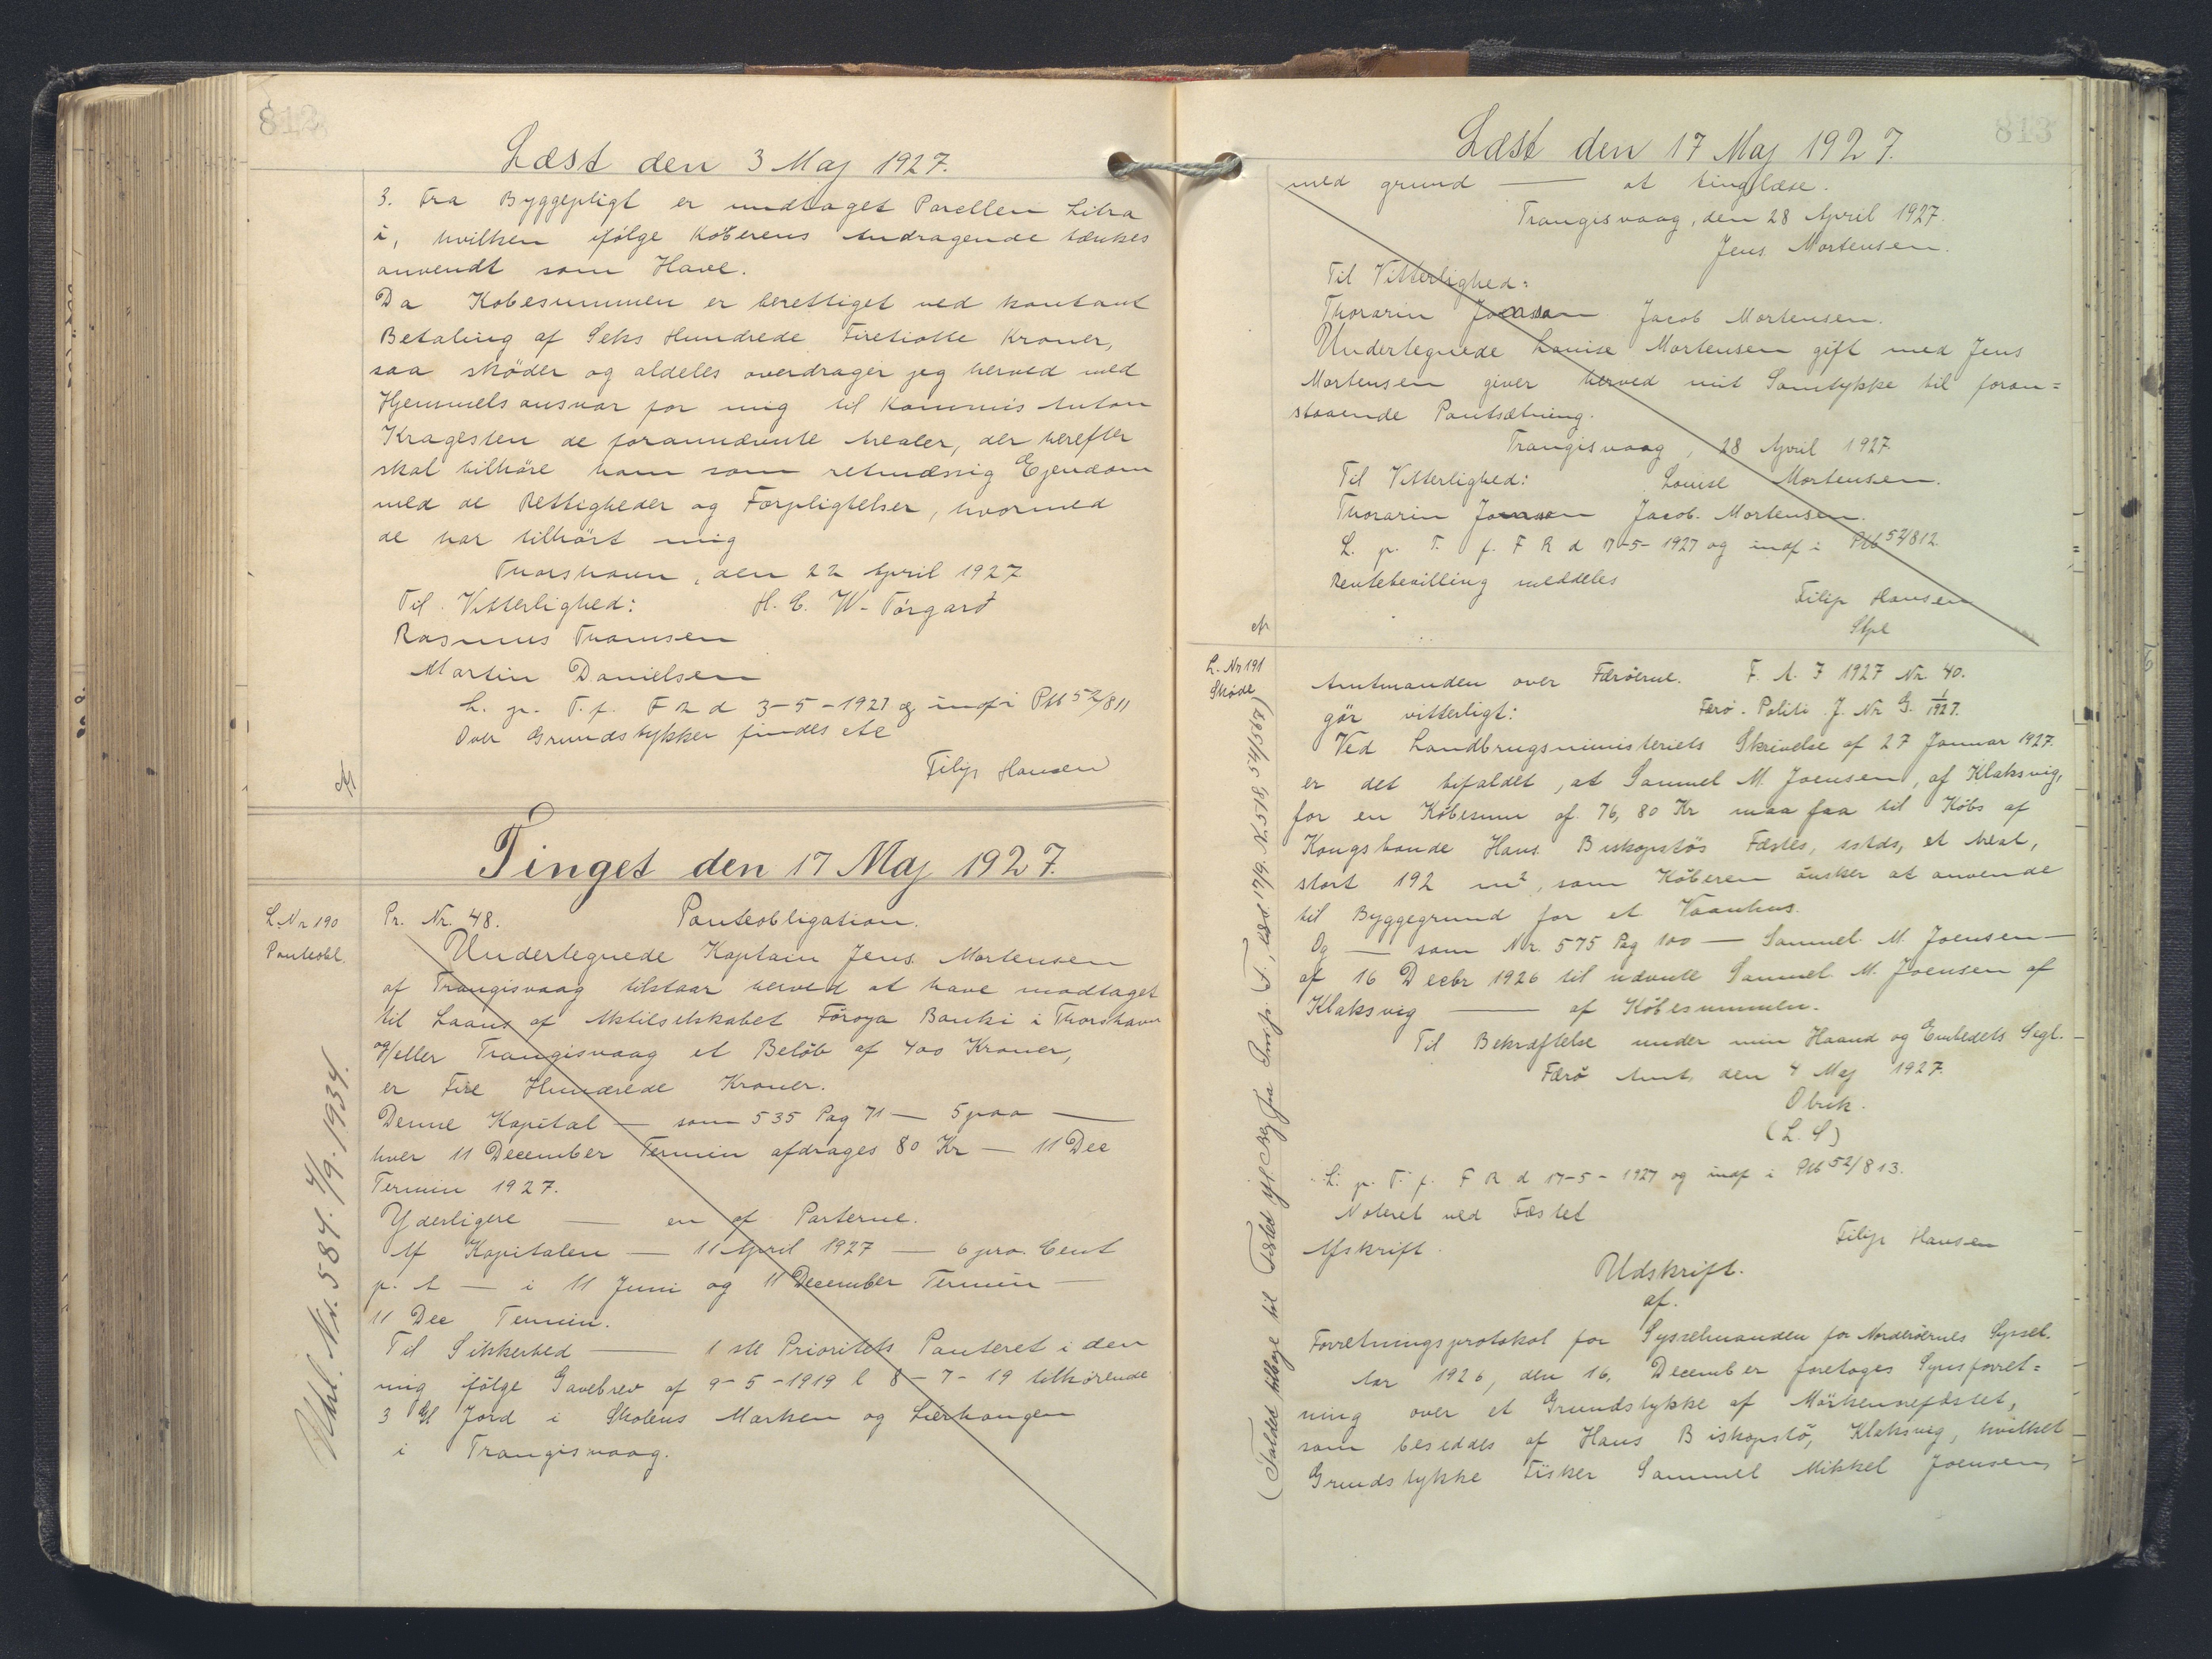 812
Læst den 3 Maj 1927.
3. Fra Byggepligt er undtaget Parcellen Litra
i, hvilken ifølge Köberens Andragende tænkes
anvendt som Have.
Da Kobesummen er berettiget ved kontant
Betaling af Seks Hundrede Firetiotte Kroner,
saa sköder og aldeles overdrager jeg herved med
Hjemmelsansvar for mig til Kommis Anton
Kragesten de forannævnte Arealer, der herefter
skal tilhöre ham som retmæssig Ejendom
med de Rettigheder og Forpligtelser, hvormed
de har tilhört mig
Thorshavn, den 22 April 1927
Til Vitterlighed: H. C. W. Tórgarð
Rasmus Thomsen
Martin Danielsen
L. p. T. f. F R d 3-5-1927 og indf i Ptb 52/811
Over Grundstykker findes etc
Filip Hansen
Tinget den 17 Maj 1927.
L. Nr 190
Panteobl
Pr. Nr. 48. Panteobligation.
Undertegnede Kaptain Jens Mortensen
af Trangisvaag tilstaar herved at have modtaget
til Laans af Aktieselskabet Föroya Banki i Thorshavn
og/eller Trangisvaag et Belöb af 400 Kroner,
er Fire Hundrede Kroner.
Denne Kapital — som 535 Pag 71 — 5 paa —
hver 11 December Termin afdrages 80 Kr — 11 Dec
Termin 1927.
Yderligere — en af Parterne.
Af Kapitalen — 11 April 1927 — 6 pro Cent
p. A — i 11 Juni og 11 December Termin —
11 Dec Termin.
Til Sikkerhed — 1 ste Prioritets Panteret i den
mig ifölge Gavebrev af 9-5-1919 l 8-7-19 tilhörende
3 Gl Jord i Skolens Marken og
i Trangisvaag.
Udsl. Nr. 584. 4/9. 1934.
813
Læst den 17 Maj 1927.
med grund — at tinglæse.
Trangisvaag, den 28 April 1927.
Jens Mortensen.
Til Vitterlighed:
Thorarin Joensen Jacob Mortensen.
Undertegnede Louise Mortensen gift med Jens
Mortensen giver herved mit Samtykke til foran=
staaende Pantsætning.
Trangisvaag, 28 April 1927.
Til Vitterlighed: Louise Mortensen.
Thorarin Joensen Jacob Mortensen.
L. p. T. f. F R d 17-5-1927 og indf i Ptb 52/812.
Rentebevilling meddeles
Filip Hansen
Stpl
L. Nr 191
Sköde
Amtmanden over Færöerne. F. A. J 1927 Nr. 40.
gör vitterligt: Færö. Politi J. Nr G. 1/1927.
Ved Landbrugsministeriets Skrivelse af 27 Januar 1927.
er det bifaldet, at Samuel M. Joensen, af Klaksvig,
for en Köbesum af 76,80 Kr maa faa til Köbs af
Kongsbonde Hans Biskopstös Fæste, sstds, et Areal,
stort 192 m², som Köberen önsker at anvende
til Byggegrund for et Vaanhus.
Og — som Nr. 575 Pag 100 — Samuel M. Joensen —
af 16 Decbr 1926 til nævnte Samuel M. Joensen af
Klaksvig — af Köbesummen.
Til Bekræftelse under min Haand og Embedets Segl.
Færö Amt, den 4 Maj 1927.
Obrik.
(L. S)
L. p. T. f. F R d 17-5-1927 og indf i Ptb 52/813.
Noteret ved Fæstet
Filip Hansen
Afskrift.
Udskrift.
af.
Forretningsprotokol for Sysselmanden for Norderöernes Syssel.
Aar 1926, den 16. December foretoges Synsforret=
ning over et Grundstykke af Mörkennefæstet,
som besiddes af Hans Biskopstö, Klaksvig, hvilket
Grundstykke Fisker Samuel Mikkel Joensen